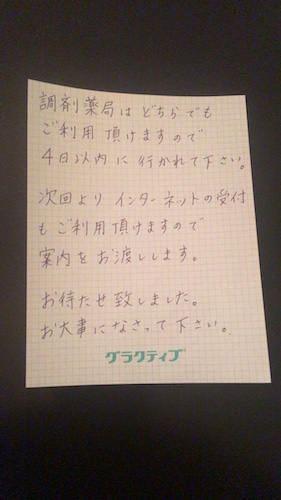 調剤薬局はどちらでも
ご利用頂けますので
4日以内に行かれて下さい。
次回よりインターネットの受付
もご利用頂けますので
案内をお渡しします。
お待たせ致しました。
お大事になさって下さい。
グラクティブ